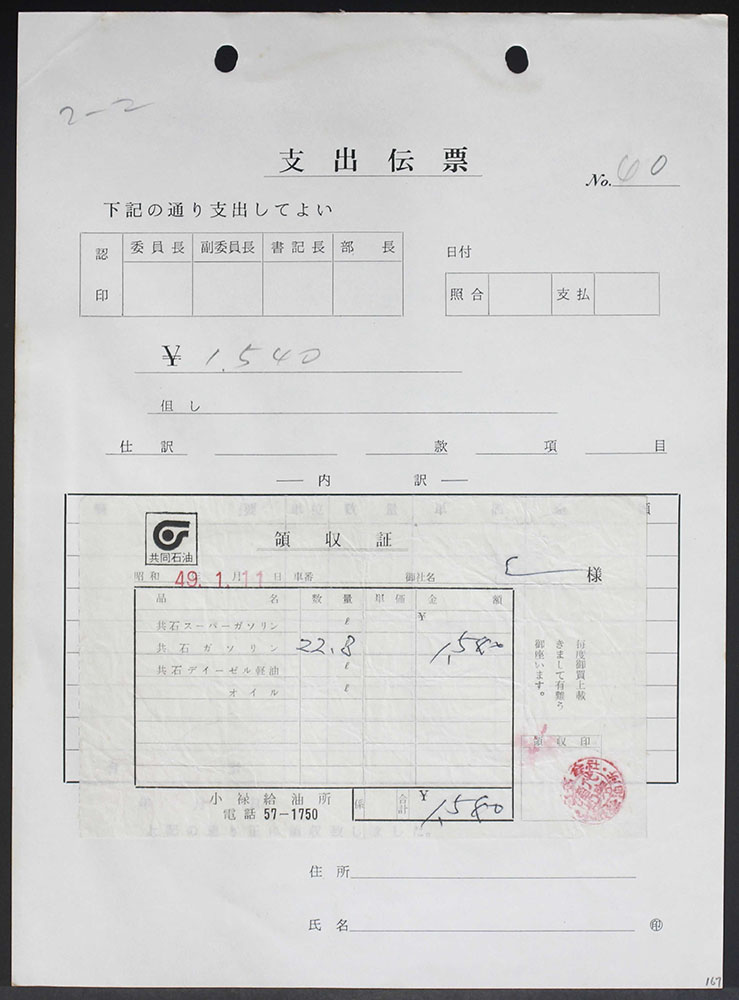 2-2
支出伝票
No. 60
下記の通り支出してよい
認印
委員長 副委員長 書記長 部長
日付
照合 支払
¥ 1.540
但し
仕訳 款 項 目
内訳
共同石油
領収証
昭和 49.1月11日 車番 御社名 様
品名 数量 単価 金額
共石スーパーガソリン ℓ ¥
共石ガソリン 22.8
共石デイーゼル軽油 ℓ
オイル ℓ
毎度御買上載
きまして有難う
御座います。
領収印
小禄給油所
電話 57-1750
係 合計 ¥
上記の通り正に領収致しました。
住所
氏名 ㊞
167